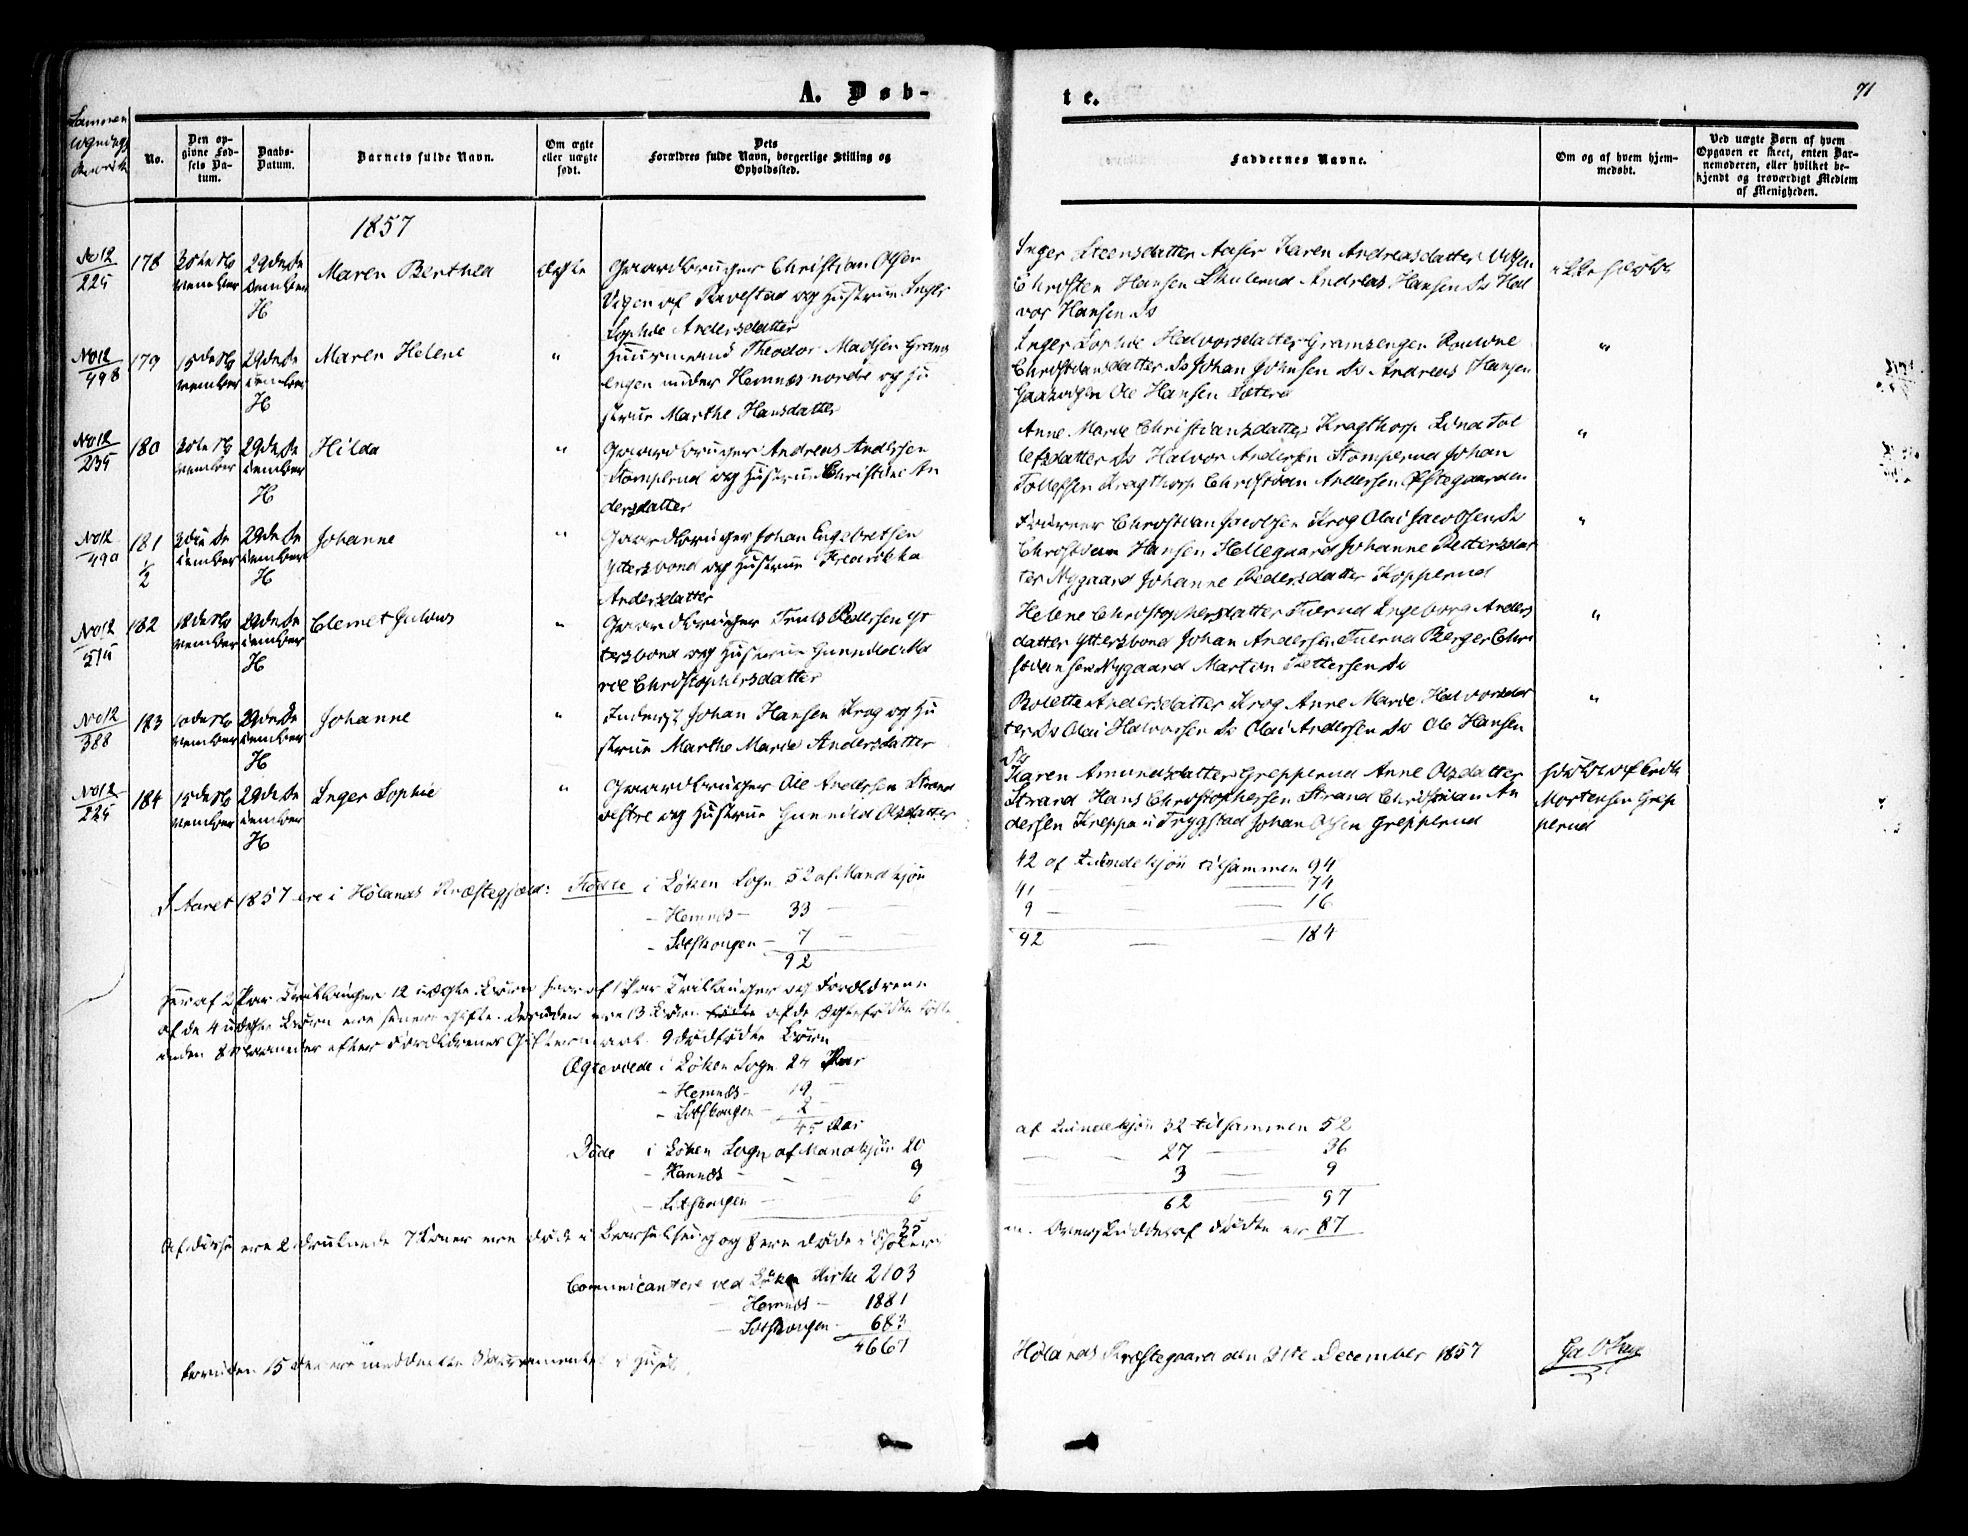 A. Døb-
te.
71
No.
Den op-
givne Fød-
sels Da-
tum.
Daabs-
Datum.
Barnets fulde Navn.
Om ægte
eller uægte
født.
Dets
Forældres fulde Navn, borgerlige Stilling og
Opholdssted.
Faddernes Navne.
Om og af hvem hjem-
medøbt.
Ved uægte Børn af hvem
Opgaven er skeet, enten Bar-
nemoderen, eller hvilket be-
kjendt og troværdigt Medlem
af Menigheden.
1857
No 12
225
178
29de De
cember
H
Maren Berthea
Ægte
Gaardbruger Christian Olsen
Vigen af Ravestad og Hustrue Inger
Sophie Andersdatter
Inger Steensdatter Karen Andreasdatter Vigen
Christen Hansen Skulerud Andreas Hansen Ds Hal
vor Hansen Ds
No 12
498
179
15de No
vember
29de De
cember
H
Maren Helene
"
Huusmand Theodor Madsen Grans
engen under Hemnæs nordre og Hu
strue Marthe Hansdatter
Inger Sophie Halvorsdatter Gransengen
Christiansdatter Ds Johan Johnsen Ds Andreas Hansen
Ole Hansen Sætere
"
No 12
235
180
29de De
cember
H
Hilda
"
Gaardbruger Andreas Andersen
Stomperud og Hustrue Christine An
dersdatter
Anne Marie Christiansdatter Kragthorp Tol
lefsdatter Ds Halvor Andersen Stomperud Johan
Tollefsen Kragthorp Christian Andersen Østegaarden
"
No 12
490
181
1/2
29de De
cember
H
Johanne
"
Gaardbruger Johan Engebretsen
Yttersbond og Hustrue Fredrikka
Andersdatter
Christian Jacobsen Krog Olai Jacobsen Ds
Christian Hansen Hellegaard Johanne Pettersdat
ter Nygaard Johanne Pedersdatter Kopperud
"
No 12
515
182
18de No
vember
29de De
cember
H
Clemet Julius
"
Gaardbruger Truls Pedersen Yt
tersbond og Hustrue Gunnild Ma
rie Christophersdatter
Helene Christophersdatter Tuerud Ingeborg Anders
datter Yttersbond Johan Andersen Tuerud Berger Chri
stiansen Nygaard Martin Pettersen Ds
"
No 12
388
183
10de No
vember
29de De
cember
H
Johanne
"
Inderst Johan Hansen Krog og Hu
strue Marthe Marie Andersdatter
Bolette Andersdatter Krog Anne Marie Halvorsdat
ter Ds Olai Halvorsen Ds Olai Andersen Ds Ole Hansen
Ds
"
No 12
225
184
15de No
vember
29de De
cember
H
Inger Sophie
"
Gaardbruger Ole Andersen Strand
vestre og Hustrue Gunnild Olsdatter
Karen Amundsdatter Grepperud Anne Olsdatter
Strand Hans Christophersen Strand Christian An
dersen Kreppa i Trygstad Johan Olsen Grepperud
Mortensen Grep
perud
I Aaret 1857 ere i Hølands Præstegjeld: Fødte i Løken Sogn 52 af Mandkjøn
42 af Quindekjøn tilsammen 94
- Hemnæs - 33
41 74
- Sætskougen - 7
9 16
92
92 184
Heraf 2 Par Tvillinger 12 uægte Børn heraf 1 Par Tvillinger og Forældrene
af de 4 uægte Børn ere senere gifte. Desuden ere 13 Børn fødte af de Ægtefødte
inden 8 Maaneder efter Forældrenes Giftermaal. 9 dødfødte Børn
Ægteviede i Løken Sogn 24 Par
- Hemnæs - 19
- Sætskougen - 2
45 Par
Døde i Løken Sogn af Mandkjøn 20
af Quindekjøn 32 tilsammen 52
- Hemnæs - 9
27 36
- Sætskougen - 6
3 9
35
62 97
Af disse ere 2 druknede 7 Koner ere døde i Barselseng og 8 ere døde i
Overskuddet af Fødte er 87
Communicantere ved Løken Kirke 2103
- Hemnæs - 1881
- Sætskougen - 683
4667
foruden 15 der ere meddeelte Sacramentet i Huset.
Hølands Præstegaard den 31te December 1857